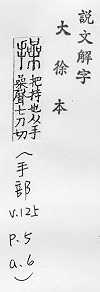 說文解字
大徐本
把持也从手
喿聲七刀切
(手部
V.125
P.5
a.6)